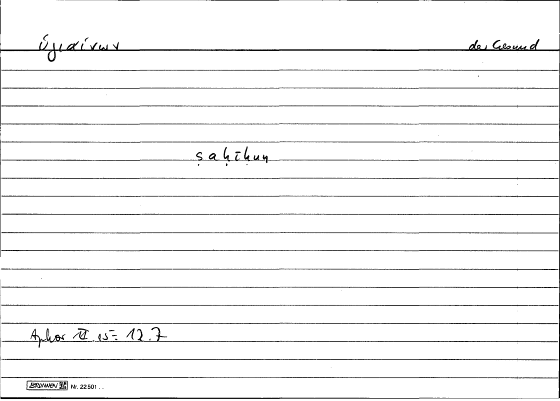 ὑγιαίνων der Gesund
ṣaḥīḥun
Aphor VI 15 = 12.7
BRUNNEN Nr. 22501